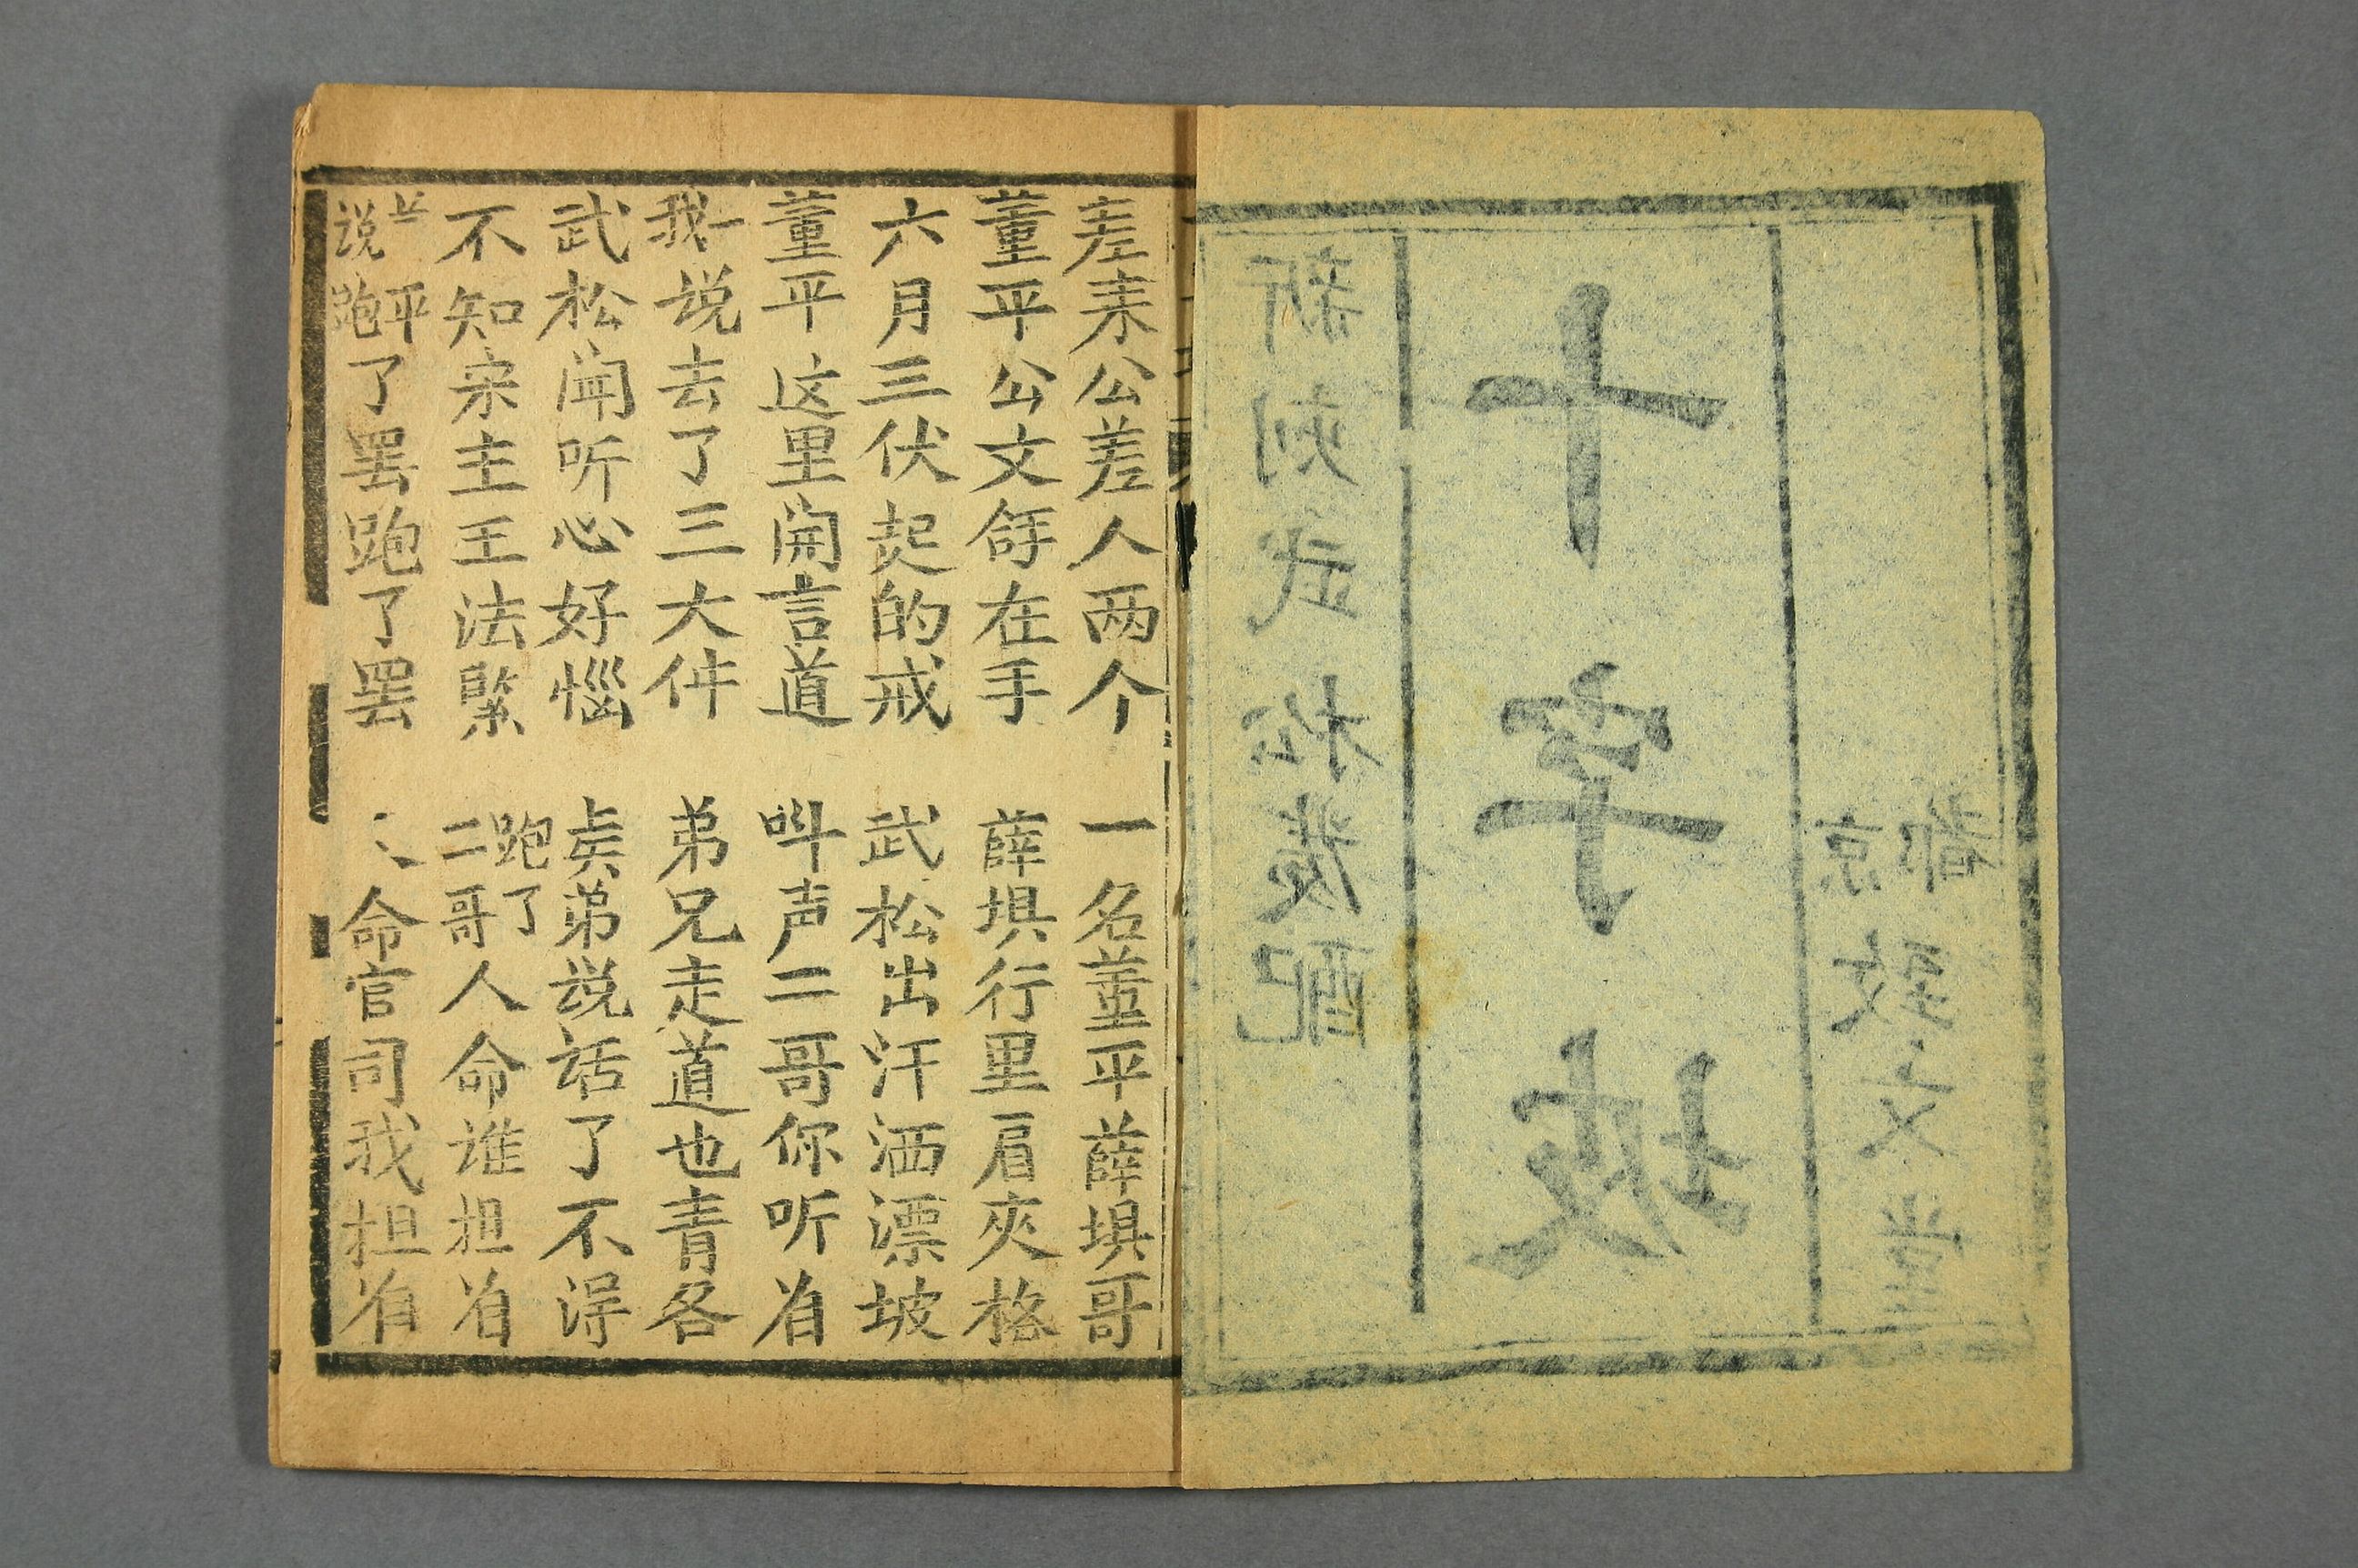 都
京
致文堂
十字坡
新刻武松發配
差来公差人两个
一名董平薛埧哥
董平公文䬷在手
薛埧行里肩夾格
六月三伏起的戒
武松出汗洒漂坡
董平这里開言道
呌声二哥你听着
我一说去了三大件
弟兄走道也青各
武松闻听心好惱
贤弟说话了不浔
不知宋主王法緊
跑了二哥人命谁担着
董平说跑了罢跑了罢
人命官司我担着